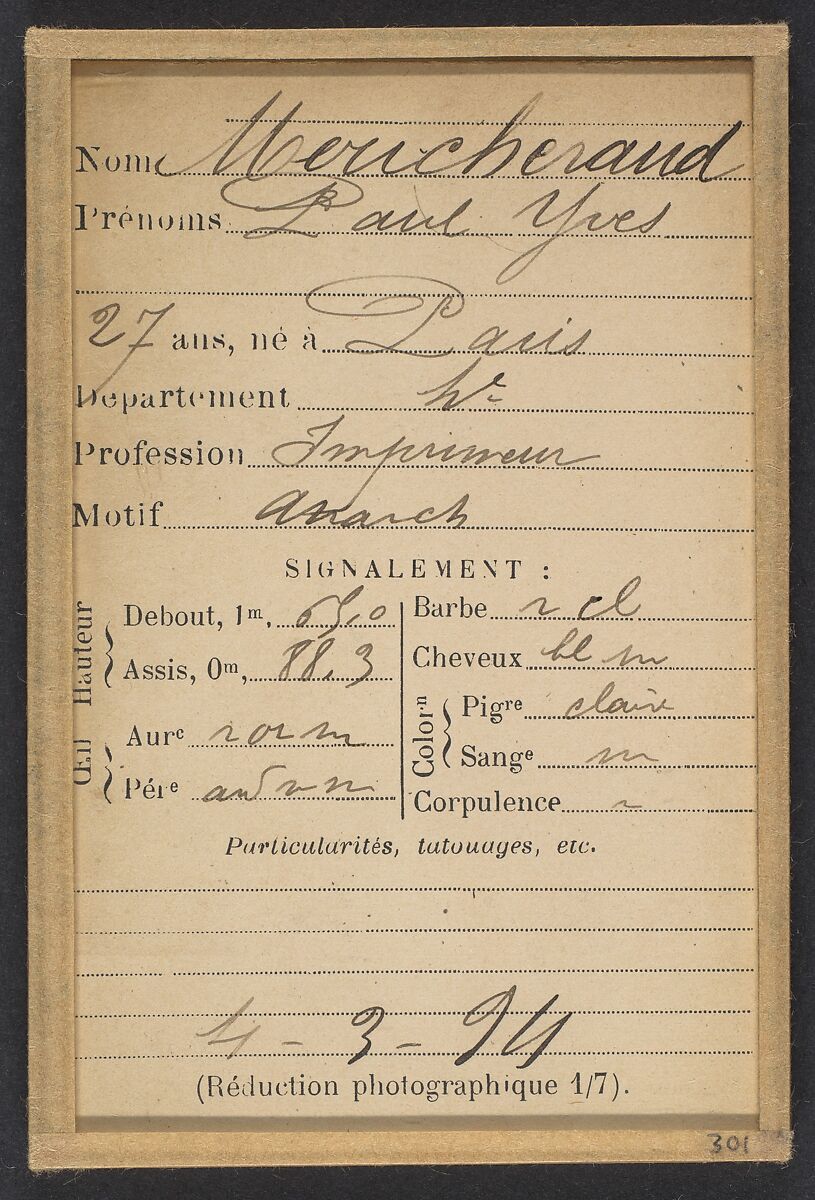 Nom Moucheraud
Prénoms Paul Yves
27 ans, né à Paris
Département
Profession Imprimeur
Motif Anarch
SIGNALEMENT :
Hauteur
Debout, 1m, 65,0
Assis, 0m, 88,3
Œil
Aurᵉ r or m
Périᵉ
Barbe r cl
Cheveux bl m
Colorⁿ
Pigʳᵉ claire
Sangᵉ m
Corpulence
Particularités, tatouages, etc.
4 - 3 - 94
(Réduction photographique 1/7).
301